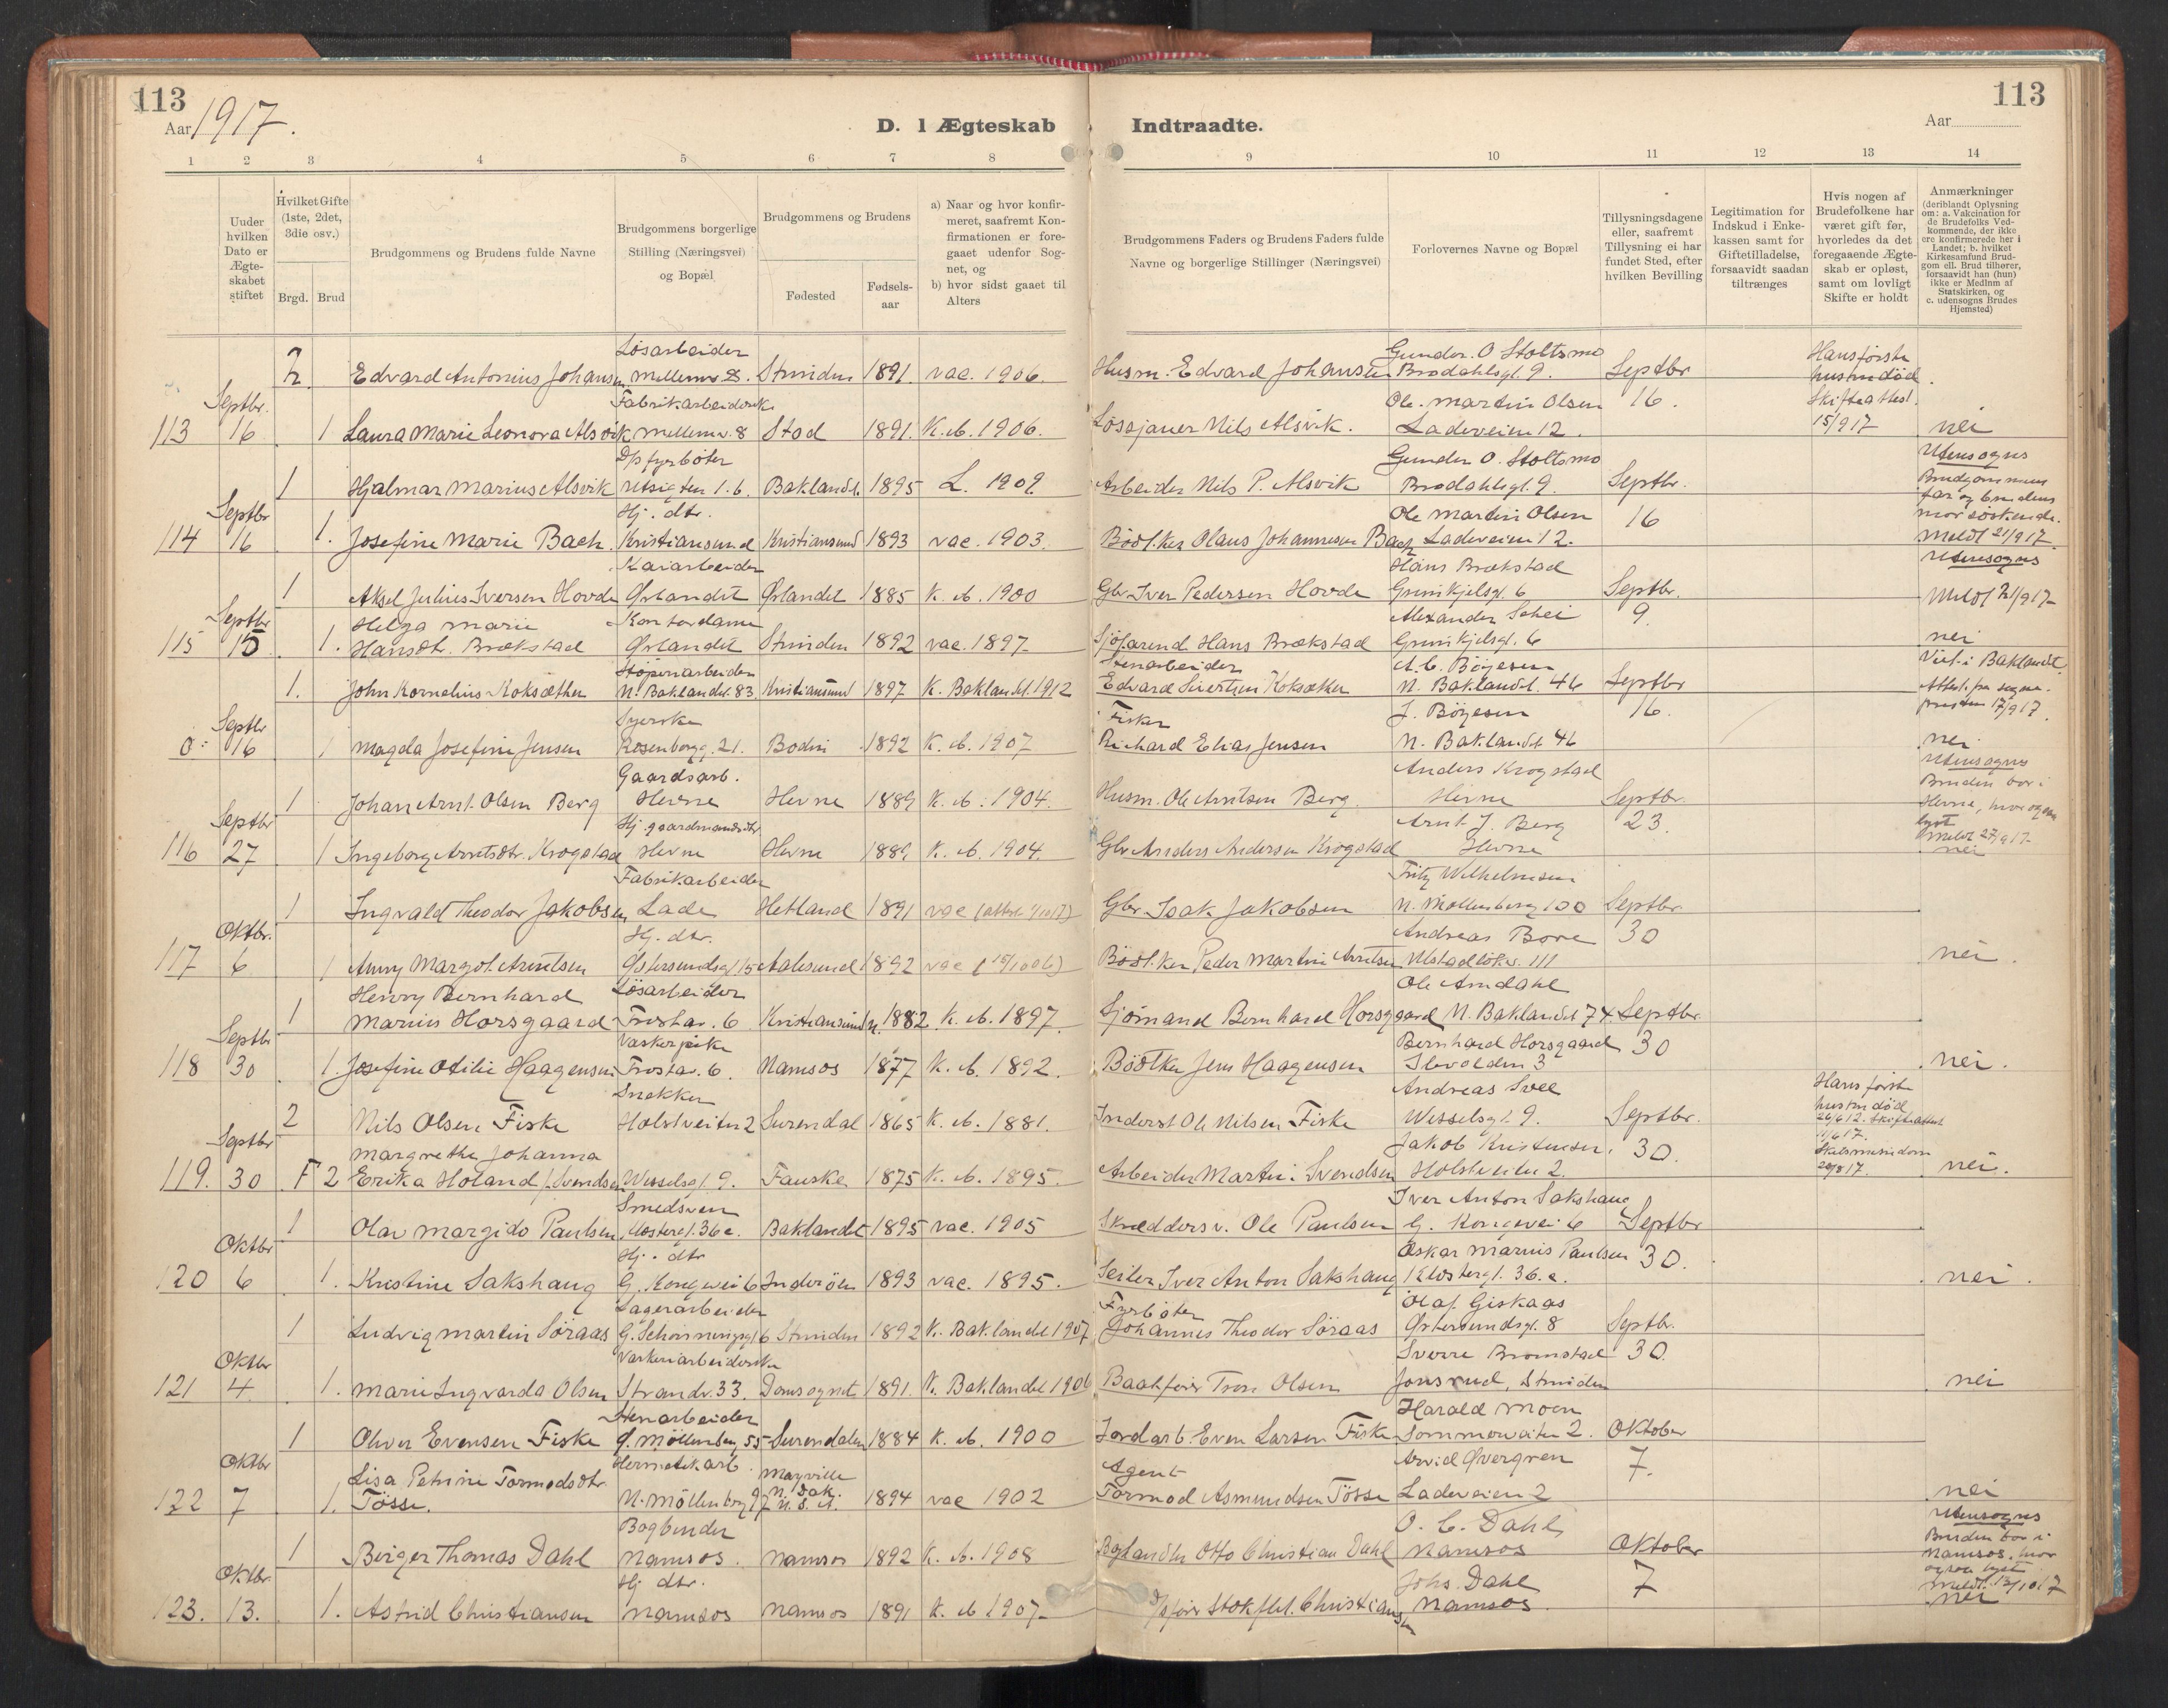 113
Aar 1917.
D. I Ægteskab
Indtraadte.
113
Aar
1 2 3 4 5 6 7 8
9 10 11 12 13 14
Uuder hvilken Dato er Ægte-skabet stiftet
Hvilket Gifte (1ste, 2det, 3die osv.)
Brgd. Brud
Brudgommens og Brudens fulde Navne
Brudgommens borgerlige Stilling (Næringsvei) og Bopæl
Brudgommens og Brudens
Fødested
Fødsels-aar
a) Naar og hvor konfir-meret, saafremt Kon-firmationen er fore-gaaet udenfor Sog-net, og
b) hvor sidst gaaet til Alters
Brudgommens Faders og Brudens Faders fulde Navne og borgerlige Stillinger (Næringsvei)
Forlovernes Navne og Bopæl
Tillysningsdagene eller, saafremt Tillysning ei har fundet Sted, efter hvilken Bevilling
Legitimation for Indskud i Enke-kassen samt for Giftetilladelse, forsaavidt saadan tiltrænges
Hvis nogen af Brudefolkene har været gift før, hvorledes da det foregaaende Ægte-skab er opløst, samt om lovligt Skifte er holdt
Anmærkninger (deriblandt Oplysning om: a. Vakcination for de Brudefolks Ved-kommende, der ikke ere konfirmerede her i Landet; b. hvilket Kirkesamfund Brud-gom ell. Brud tilhører, forsaavidt han (hun) ikke er Medlnm af Statskirken, og c. udensogns Brudes Hjemsted)
2 Edvard Antonius Johansen Løsarbeider Mellemv. 8. Strinden 1891. vac. 1906. Husm. Edvard Johansen Gunder O Stoltsmo Brodahlsgt. 9. Septbr Hans første hustru død.
113 Septbr. 16 1 Laura Marie Leonora Alsvik Fabrikarbeiderske Mellemv. 8 Stod 1891. K. d. 1906. Løssjauer Nils Alsvik. Ole Martin Olsen Ladeveien 12. 16. Skifteattest. 15/9 17 nei
1 Hjalmar Marius Alsvik D/s fyrbøter Utsigten 1. b. Baklandet 1895 L. 1909 Arbeider Nils P. Alsvik Gunder O. Stoltsmo Brodahlsgt. 9. Septbr. Utensogns Brudgommens far og brudens mor søskende.
114 Septbr 16 1. Josefine Marie Bach. Hj. dtr. Kristiansund Kristiansund 1893 vac. 1903. Bødtker Olaus Johannesen Bach Ole Martin Olsen Ladeveien 12. 16 Meldt 21/9 17.
1 Aksel Julius Iversen Hovde Kaiarbeider Ørlandet Ørlandet 1885 K. d. 1900 Gbr Iver Pedersen Hovde Hans Brækstad Grinikjelsgt. 6 Septbr. Utensogns Meldt 21/9 17
115 Septbr 15 1. Helga Marie Hansdtr. Brækstad Kontordame Ørlandet Strinden 1892 vac. 1897 Sjøfarend. Hans Brækstad Alexander Schei Grinikjelsgt. 6 9. nei
1. John Kornelius Koksæther Støperiarbeider N. Baklandet 83 Kristiansund 1897 K. Baklandet 1912 Stenarbeider Edvard Sivertsen Koksæther A. C. Böyesen N. Baklandet. 46 Septbr Viet i Baklandet Attest fra sogne-presten 17/9 17.
0: Septbr 16 1 Magda Josefine Jensen Syerske Rosenborgg. 21. Bodin 1892 K. d. 1907 Fisker Richard Elias Jensen J. Böyesen N. Baklandet 46 16. nei
1 Johan Arnt Olsen Berg Gaardsarb. Hevne Hevne 1889 K. d. 1904. Husm. Ole Arntsen Berg. Anders Krogstad Hevne Septbr. Utensogns Bruden bor i Hevne, hvor ogsaa lyst
116 Septbr 27 1 Ingeborg Arntsdtr. Krogstad Hj. gaardmandsdtr Hevne Hevne 1889 K. d. 1904. Gbr Anders Andersen Krogstad Arnt J. Berg Hevne 23. Meldt 27/9 17 nei
1 Ingvald Theodor Jakobsen Fabrikarbeider Lade Hetland 1891 vac Gbr. Isak Jakobsen Fritz Wilhelmsen N. Møllenberg 100 Septbr.
117 Oktbr. 6 1 Anny Margot Arntsen Hj. dtr. Østersundsgt 15 Aalesund 1892 vac Bødtker Peder Martin Arntsen Andreas Bore Ulstadløkv. 111 30 nei.
1 Henry Bernhard Marius Horsgaard Løsarbeider Frostav. 6 Kristiansund N. 1882 K. d. 1897. Sjømand Bernhard Horsgaard Ole Arndahl N. Baklandet 74 Septbr.
118 Septbr 30 1. Josefine Otilie Haagensen Vaskerpike Frostav. 6. Namsos 1877 K. d. 1892. Bödtker Jens Haagensen Bernhard Horsgaard Ilevolden 3 30 nei.
2 Nils Olsen Fiske Snekker Holstveiten 2 Surendal 1865 K. d. 1881. Inderst Ole Nilsen Fiske Andreas Svee Wesselsgt. 9. Septbr. Hans første hustru død 26/6 12. Skifteattest 11/6 17.
119. Septbr 30 F 2 Margrethe Johanna Erika Holand f. Svendsen Wesselsgt. 9. Fauske 1875 K. d. 1895. Arbeider Martin Svendsen Jakob Kristensen. Holstveiten 2. 30. Skilsmissedom 20/8 17. nei.
1 Olav Margido Paulsen Smedsven Klostergt. 36 a. Baklandet 1895 vac. 1905 Skræddersv. Ole Paulsen Iver Anton Sakshaug G. Kongevei 6 Septbr
120 Oktbr 6 1. Kristine Sakshaug Hj. dtr G. Kongevei 6 Inderøen 1893 vac. 1895. Seiler Iver Anton Sakshaug Oskar Marius Paulsen Klostergt. 36. a. 30. nei.
1 Ludvig Martin Søraas Lagerarbeider G. Schøningsgt 6 Strinden 1892 K. Baklandet 1907 Fyrbøter Johannes Theodor Søraas Olaf Giskaas Østersundsgt. 8 Septbr.
121 Oktbr 4 1. Marie Ingvarda Olsen Vaskeriarbeiderske Strandv. 33. Domsognet 1891. K. Baklandet 1906 Baatfører Tron Olsen Sverre Bromstad Jonsrud, Strinden 30. nei
1 Oliver Evensen Fiske Stenarbeider Ø. Møllenberg 55 Surendalen 1884 K. d. 1900 Jordarb. Even Larsen Fiske Harald Moen Sommerveiten 2. Oktober
122 Oktbr 7 1. Lisa Petrine Tormodsdtr Tösse. Hermetikarb. N. Möllenberg 97 Mayville N. Dak. U. S. A. 1894 vac 1902 Agent Tormod Asmundsen Tösse Arvid Øvergren Ladeveien 2 7. nei
1 Birger Thomas Dahl Bogbinder Namsos. Namsos 1892 K. d. 1908 Boghandler Otto Christian Dahl O. C. Dahl Namsos Oktober Utensogns Bruden bor i Namsos, hvor ogsaa lyst
123. Oktbr. 13. 1. Astrid Christiansen Hj dtr. Namsos Namsos 1891 K. d. 1907 D/sfører Stokflet Christiansen Johs. Dahl Namsos. 7 Meldt 13/10 17 nei